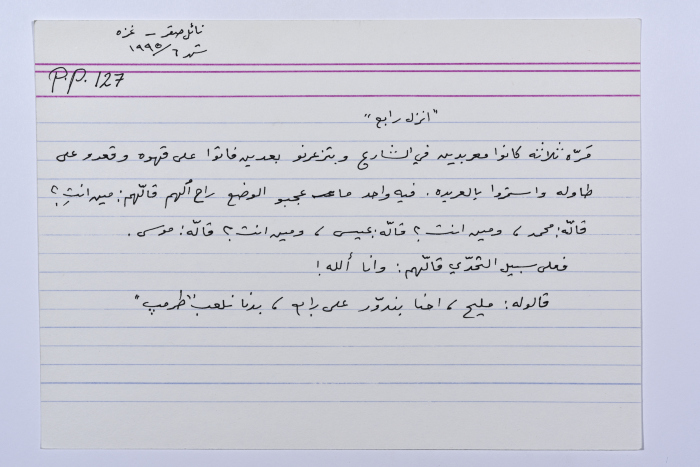 نائل صقر - غزه
شهر ٦/١٩٩٥
P.P. 127
"انزل رابع"
مَرّه ثلاثه كانوا معربدين في الشارع وبتزعرنو بعدين فاتوا على قهوه وقعدو على
طاوله واستمرّوا بالعربده. فيه واحد ما عجبو الوضع راح ألهم قالّهم: مين انتِ؟
قالّه: محمد، ومين انت؟ قالّه: عيسى، ومين انت؟ قالّه: موسى.
فعلى سبيل التحدّي قالّهم: وانا ألله!
قالوله: مليح، احنا بندوّر على رابع، بدنا نلعب "طرمب"